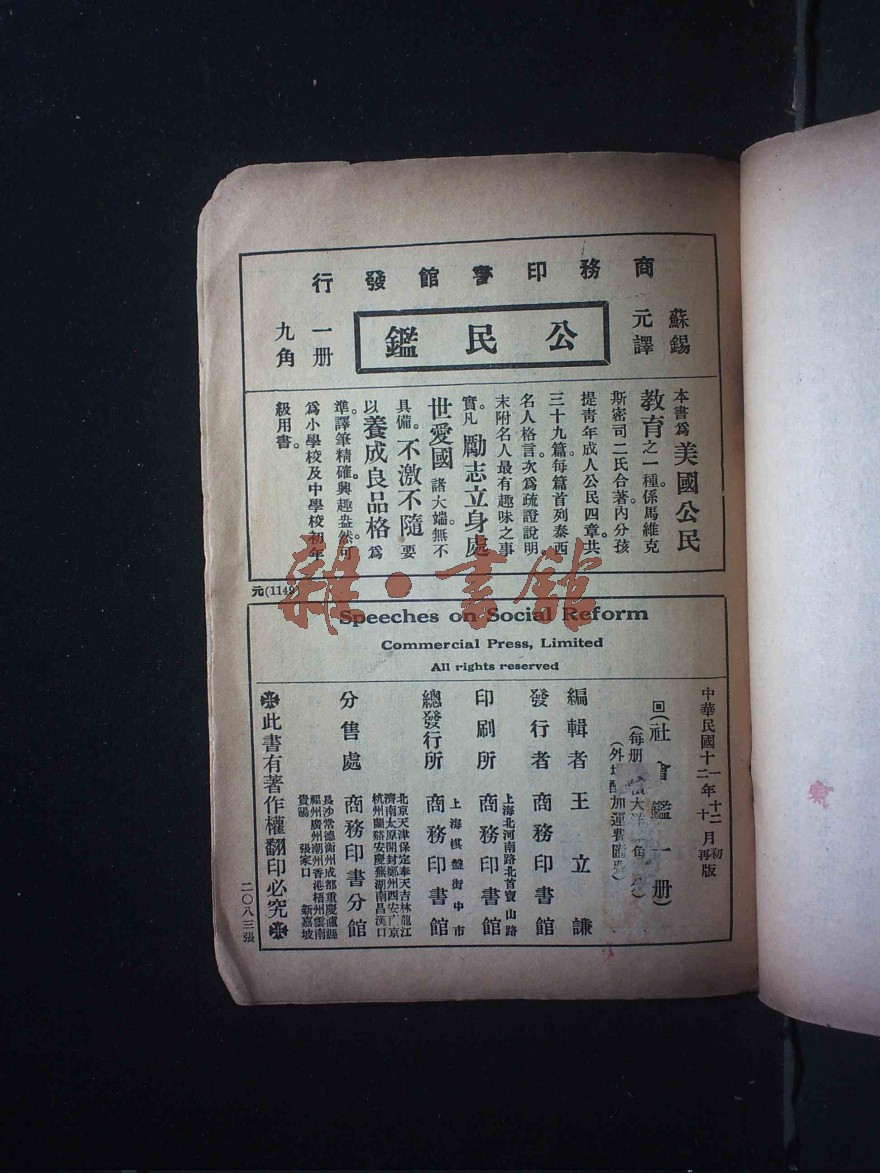 商務印書館發行
蘇錫
元譯
公民鑑
一册
九角
本書爲美國公民
教育之一種。係馬維克
斯密司二氏合著。內分孩
提青年成人公民四章。共
三十九篇。每篇首列泰西
名人格言。次爲疏證說明
末附名人最有趣味之事
實。凡勵志立身處
世愛國諸大端。無不
具備。不激不隨。要
以養成良品格爲
準。譯筆精確。興趣盎然。可
爲小學校及中學校初年
級用書。
元(1149)
雜·書館
Speeches on Social Reform
Commercial Press, Limited
All rights reserved
中華民國十一年十二月初版
十二年十月再版
回(社會鑑一册)
(每册大洋角
(外埠酌加運費匯費)
編輯者 王立謙
發行者 商務印書館
上海北河南路北首寶山路
印刷所 商務印書館
上海棋盤街中市
總發行所 商務印書館
北京天津保定奉天吉林龍江
濟南太原開封鄭州西安南京
杭州蘭谿安慶蕪湖南昌漢口
分售處 商務印書分館
長沙常德衡州成都重慶瀘縣
福州廣州潮州香港梧州雲南
貴陽 張家口 新嘉坡
此書有著作權翻印必究
二〇八三張